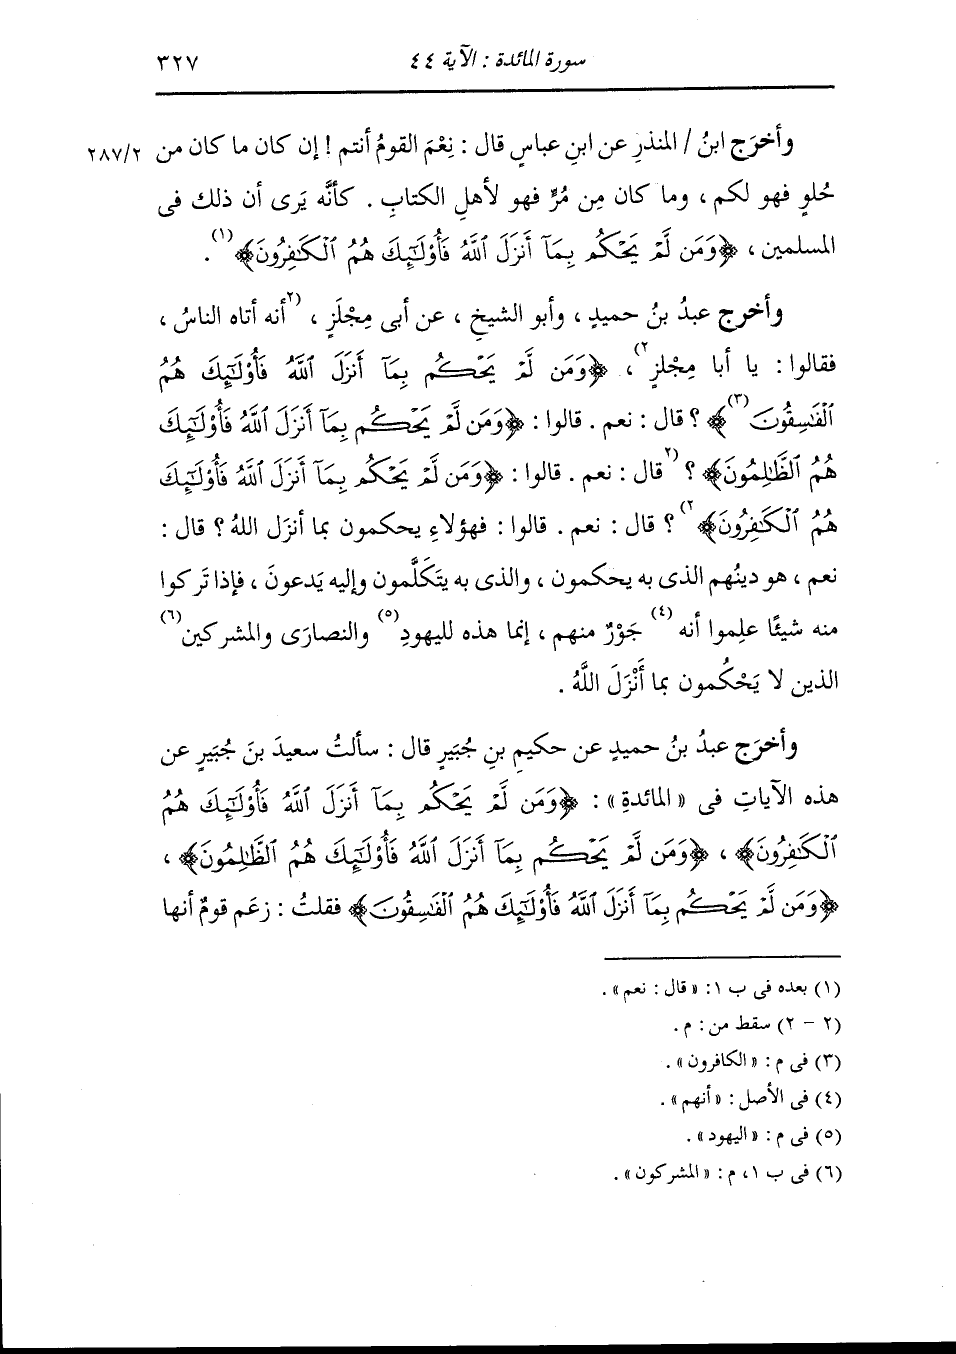 سورة المائدة : الآية ٤٤
٣٢٧
وأخرَج ابنُ / المنذرِ عن ابنِ عباسٍ قال : نِعْمَ القومُ أنتم ! إن كان ما كان من
٢٨٧/٢
حُلوٍ فهو لكم ، وما كان مِن مُرٍّ فهو لأهلِ الكتابِ . كأنَّه يَرى أن ذلك فى
المسلمين ، ﴿وَمَن لَّمْ يَحْكُم بِمَآ أَنزَلَ ٱللَّهُ فَأُوْلَـٰٓئِكَ هُمُ ٱلْكَـٰفِرُونَ﴾(١) .
وأخرج عبدُ بنُ حميدٍ ، وأبو الشيخِ ، عن أبى مِجْلَزٍ ، (٢أنه أتاه الناسُ ،
فقالوا : يا أبا مِجْلزٍ٢) ، ﴿وَمَن لَّمْ يَحْكُم بِمَآ أَنزَلَ ٱللَّهُ فَأُوْلَـٰٓئِكَ هُمُ
ٱلْفَـٰسِقُونَ(٣)﴾ ؟ قال : نعم . قالوا : ﴿وَمَن لَّمْ يَحْكُم بِمَآ أَنزَلَ ٱللَّهُ فَأُوْلَـٰٓئِكَ
هُمُ ٱلظَّـٰلِمُونَ﴾ ؟ (٢قال : نعم . قالوا : ﴿وَمَن لَّمْ يَحْكُم بِمَآ أَنزَلَ ٱللَّهُ فَأُوْلَـٰٓئِكَ
هُمُ ٱلْكَـٰفِرُونَ﴾٢) ؟ قال : نعم . قالوا : فهؤلاءِ يحكمون بما أنزَل اللهُ ؟ قال :
نعم ، هو دينُهم الذى به يحكمون ، والذى به يتَكَلَّمون وإليه يَدعونَ ، فإذا تَركوا
منه شيئًا علِموا أنه(٤) جَوْرٌ منهم ، إنما هذه لليهودِ(٥) والنصارَى والمشركين(٦)
الذين لا يَحْكُمون بما أَنْزَلَ اللَّهُ .
وأخرَج عبدُ بنُ حميدٍ عن حكيمِ بنِ جُبَيرٍ قال : سألتُ سعيدَ بنَ جُبَيرٍ عن
هذه الآياتِ فى «المائدةِ» : ﴿وَمَن لَّمْ يَحْكُم بِمَآ أَنزَلَ ٱللَّهُ فَأُوْلَـٰٓئِكَ هُمُ
ٱلْكَـٰفِرُونَ﴾ ، ﴿وَمَن لَّمْ يَحْكُم بِمَآ أَنزَلَ ٱللَّهُ فَأُوْلَـٰٓئِكَ هُمُ ٱلظَّـٰلِمُونَ﴾ ،
﴿وَمَن لَّمْ يَحْكُم بِمَآ أَنزَلَ ٱللَّهُ فَأُوْلَـٰٓئِكَ هُمُ ٱلْفَـٰسِقُونَ﴾ فقلتُ : زعَم قومٌ أنها
(١) بعده فى ب ١ : «قال : نعم» .
(٢ - ٢) سقط من : م .
(٣) فى م : «الكافرون» .
(٤) فى الأصل : «أنهم» .
(٥) فى م : «اليهود» .
(٦) فى ب ١، م : «المشركون» .